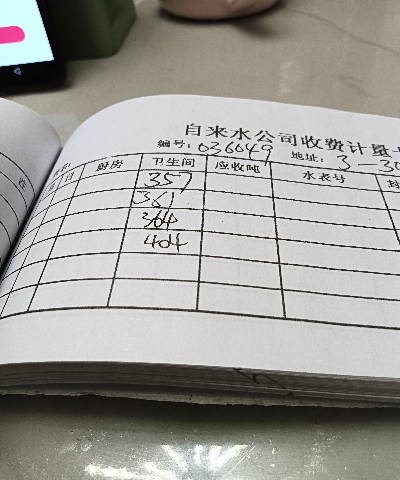 自来水公司收费计量
编号: 036649 地址: 3-30
月 日 厨房 卫生间 应收吨 水表号
357
361
364
404